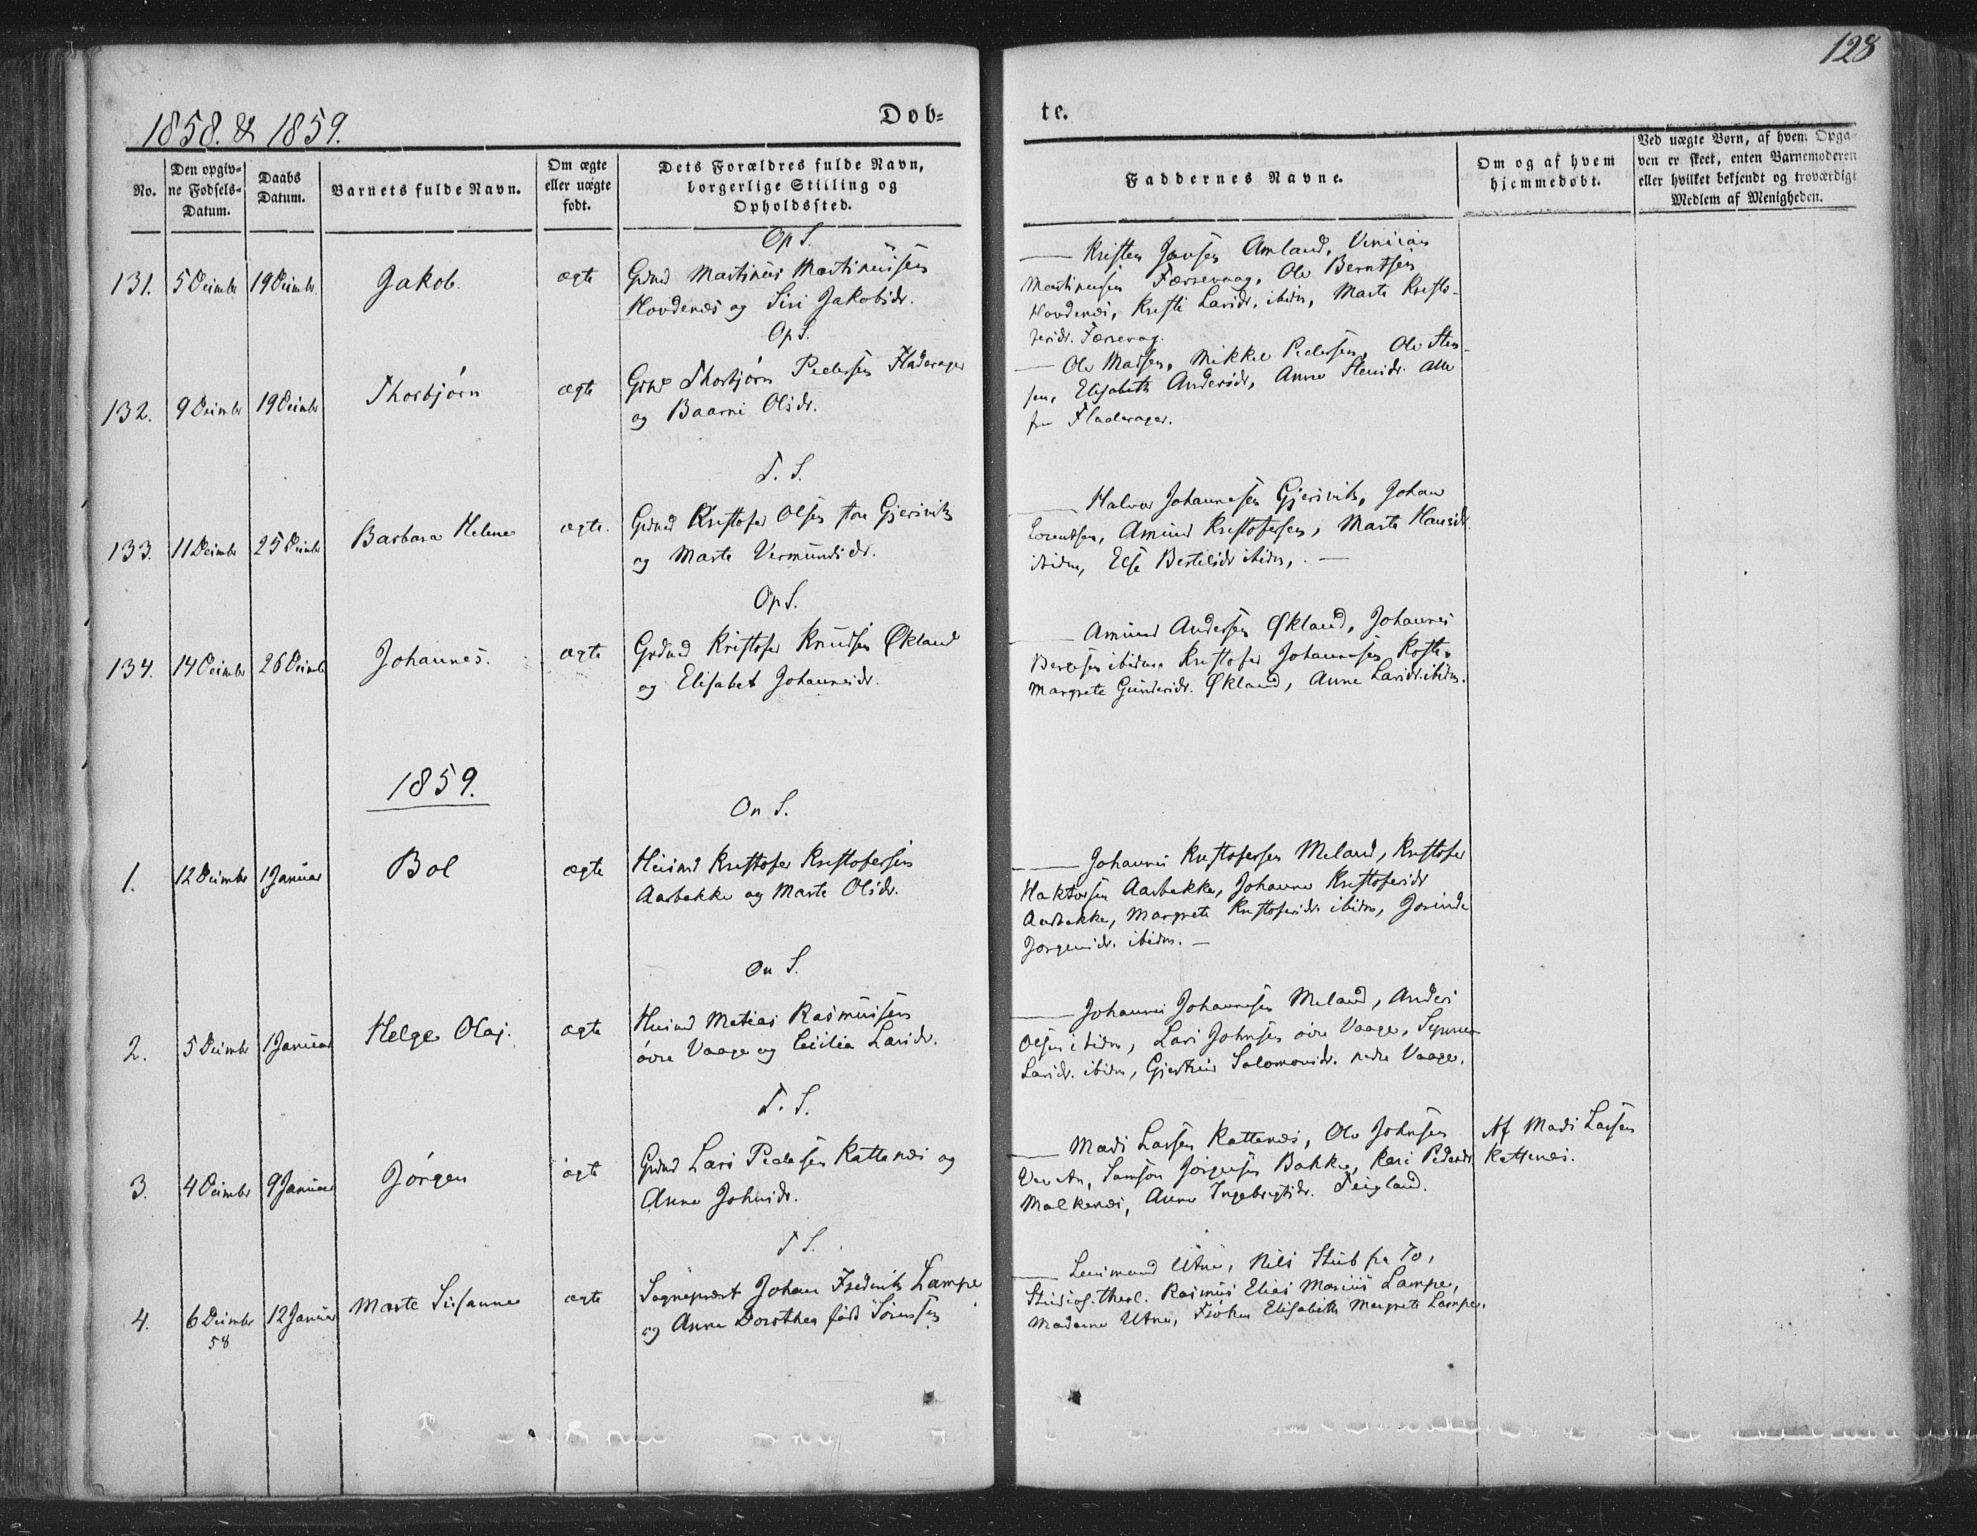 128
1858. & 1859.
Døb=
te.
No.
Den opgiv-
ne Fødsels-
Datum.
Daabs
Datum.
Barnets fulde Navn.
Om ægte
eller uægte
født.
Dets Forældres fulde Navn,
borgerlige Stilling og
Opholdssted.
Faddernes Navne.
Om og af hvem
hjemmedøbt.
Ved uægte Børn, af hvem Opga-
ven er skeet, enten Barnemoderen
eller hvilket bekjendt og troværdigt
Medlem af Menigheden.
OpS.
131. 5 Decmbr 19 Decmbr. Jakob. ægte Grdmd Martinus Martinussen
Hovdenes og Siri Jakobsdr.
Kristen Jansen Amland,
Martinusen Færsevaag, Ole Berntsen
Hovdenes, Kristi Larsdr. ibidm, Marte Kristo-
fersdr. Færsevag.
OpS.
132. 9 Decmbr 19 Decmbr Thorbjørn ægte Grdmd Thorbjørn Pedersen Fladerager
og Baarni Olsdr.
Ole Madsen, Mikkel Pedersen, Ole Sten-
sen, Elisabeth Andersdr, Anne Stensdr. alle
fra Fladerager.
T. S.
133. 11 Decmbr 25 Decmbr Barbara Helene ægte. Grdmd Kristofer Olsen store Gjersvik
og Marte Vermundsdr.
Halvor Johannesen Gjersvik, Johan
Lorentsen, Amund Kristofersen, Marte Hansdr.
ibidm, Else Bertelsdr ibidm, . —
OpS.
134. 14 Decmbr 26 Decmbr Johannes. ægte Grdmd Kristofer Knudsen Økland
og Elisabet Johannesdr.
Amund Andersen Økland, Johannes
ibidm. Kristofer Johannesen
Margrete Gundersdr. Økland, Anne Larsdr. ibidm.
1859.
On S.
1. 12 Decmbr 1 Januar Bol ægte Huusmd Kristofer Kristofersen
Aarbakke og Marte Olsdr.
Johannes Kristofersen Meland, Kristofer
Haktorsen Aarbakke, Johanne Kristofersdr
Aarbakke, Margrete Kristofersdr. ibidm, Jorinde
Jørgensdr. ibidm. —
On S.
2. 5 Decmbr 1 Januar Helge Olai. ægte Husmd Matias Rasmussen
øvre Vaage og Cicilia Larsdr.
Johannes Johannesen Meland, Anders
Olsen ibidm, Lars Johnsen øvre Vaage, Synneve
Larsdr. ibidm, Gjertrud Salomonsdr. nedre Vaage.
T. S.
3. 4 Decmbr 9 Januar Jørgen ægte Grdmd Lars Pedersen Kattenes og
Anne Johnsdr.
Mads Larsen Kattenes, Ole Johnsen
Samson Jørgensen Bakke, Kari Pedersdr
Malkenes, Anne Ingebrigtsdr. Feigland.
Af Mads Larsen
Kattenes.
T S.
4. 6 Decmbr 12 Januar Marte Susanne ægte Sogneprest Johan Frederik Lampe
58
og Anne Dorothea født Sørensen
Lensmand Utne, Nils Stub fra To,
Studios. theol. Rasmus Elias Marius Lampe,
Madame Utne, Frøken Elisabeth Margrete Lampe.